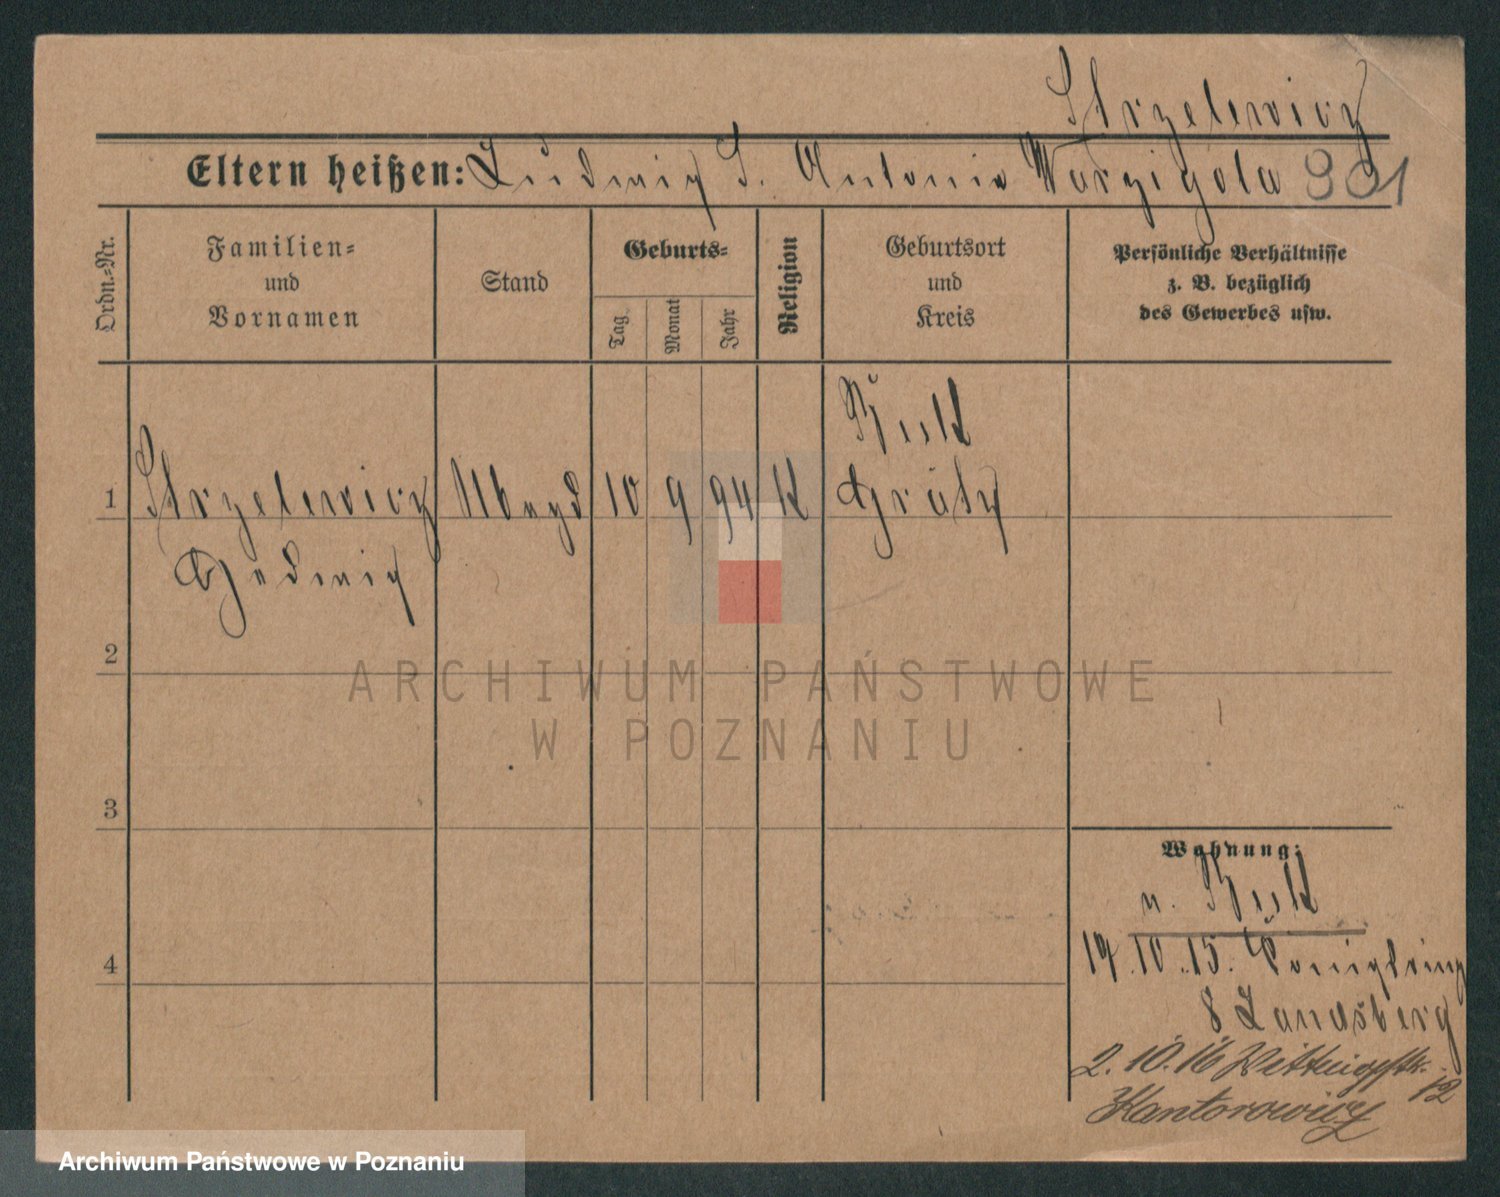 Strzelewicz
Eltern heißen: Ludwig S. Antonie 901
Ordn.-Nr.
Familien-
und
Vornamen
Stand
Geburts-
Tag
Monat
Jahr
Religion
Geburtsort
und
Kreis
Persönliche Verhältnisse
z. B. bezüglich
des Gewerbes usw.
Buk
1 Strzelewicz Magd 10 9 94 K Grätz
Hedwig
2
ARCHIWUM PAŃSTWOWE
W POZNANIU
3
Wohnung:
n. Buk
4
19.10.15. Königsring
8 Landsberg
2.10.16
12
Kantorowicz
Archiwum Państwowe w Poznaniu